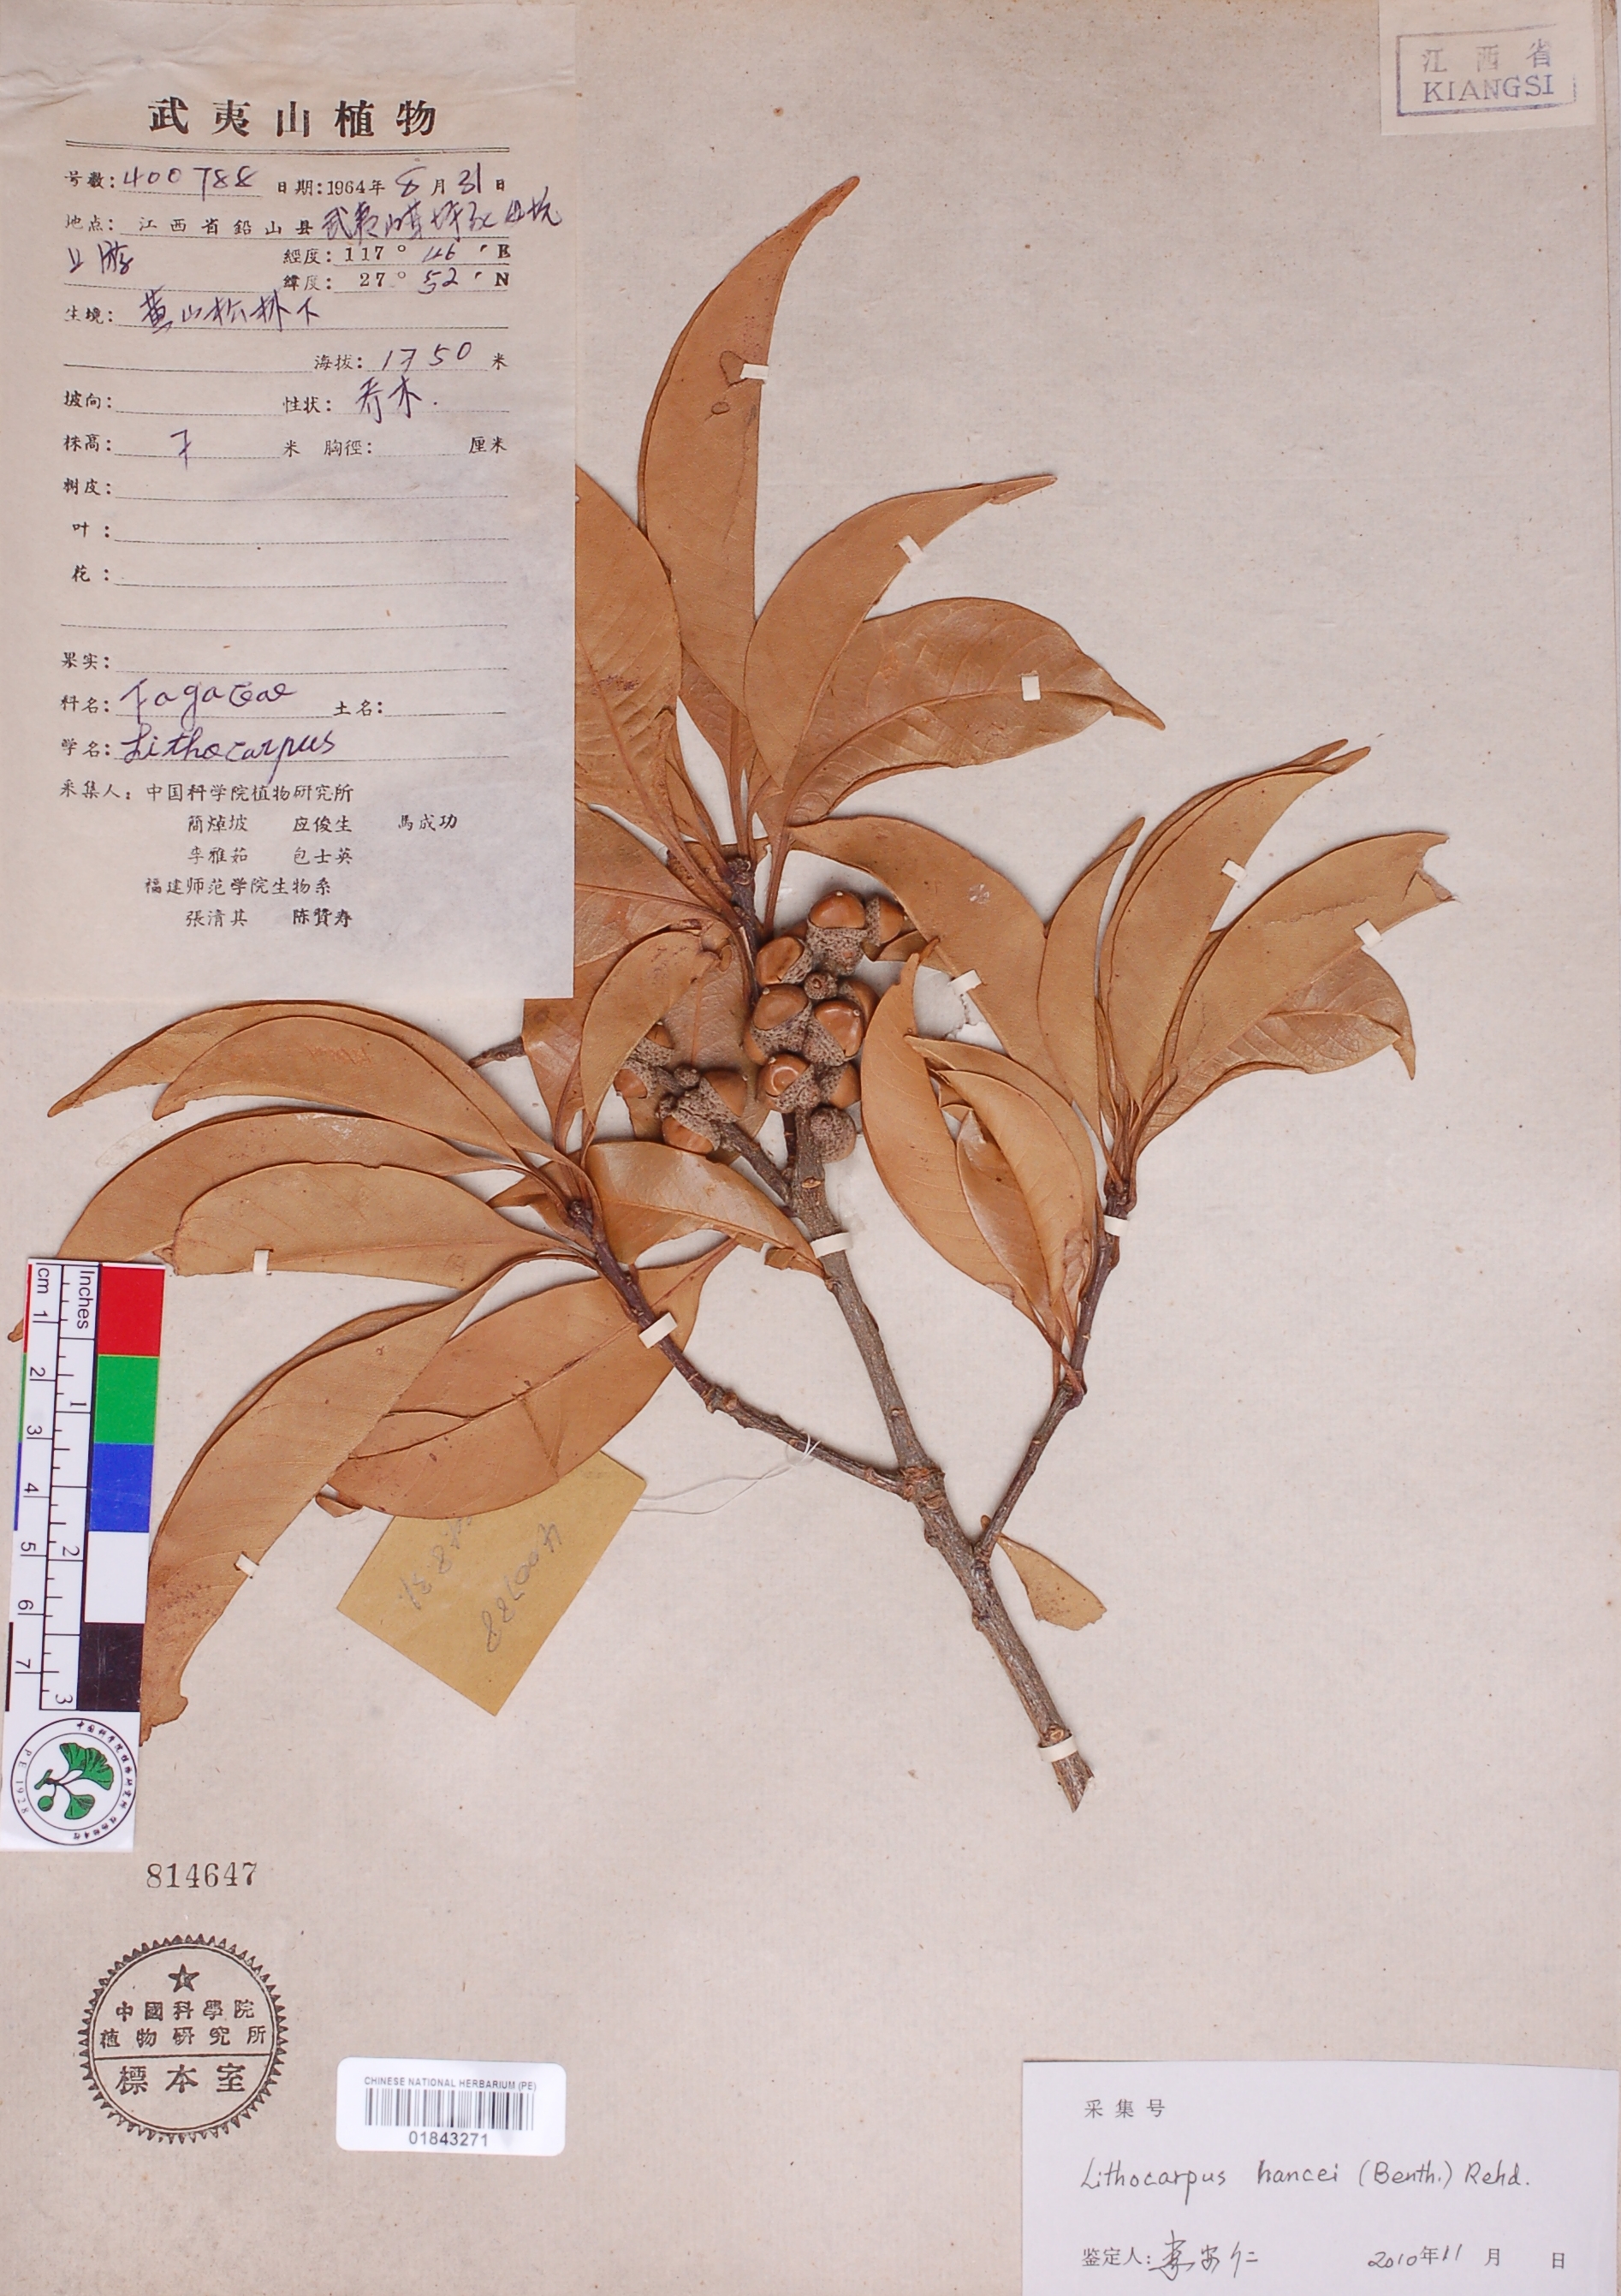 江西省
KIANGSI
武夷山植物
号数: 400788 日期: 1964年 8月 31日
地点: 江西省鉛山县武夷山
上游 經度: 117° 46′ E
緯度: 27° 52′ N
生境: 黄山松林下
海拔: 1750 米
坡向: 性状: 乔木.
株高: 7 米 胸徑: 厘米
树皮:
叶:
花:
果实:
科名: Fagaceae 土名:
学名: Lithocarpus
采集人: 中国科学院植物研究所
簡焯坡 应俊生 馬成功
李雅茹 包士英
福建师范学院生物系
張清其 陈贊寿
400788
8 31
Inches
cm 1 2 3 4 5 6 7
1 2 3
中国科学院植物研究所 植物标本馆
PE 1928
814647
中國科學院
植物研究所
標本室
CHINESE NATIONAL HERBARIUM (PE)
01843271
采集号
Lithocarpus hancei (Benth.) Rehd.
鉴定人: 李安仁 2010年11月 日